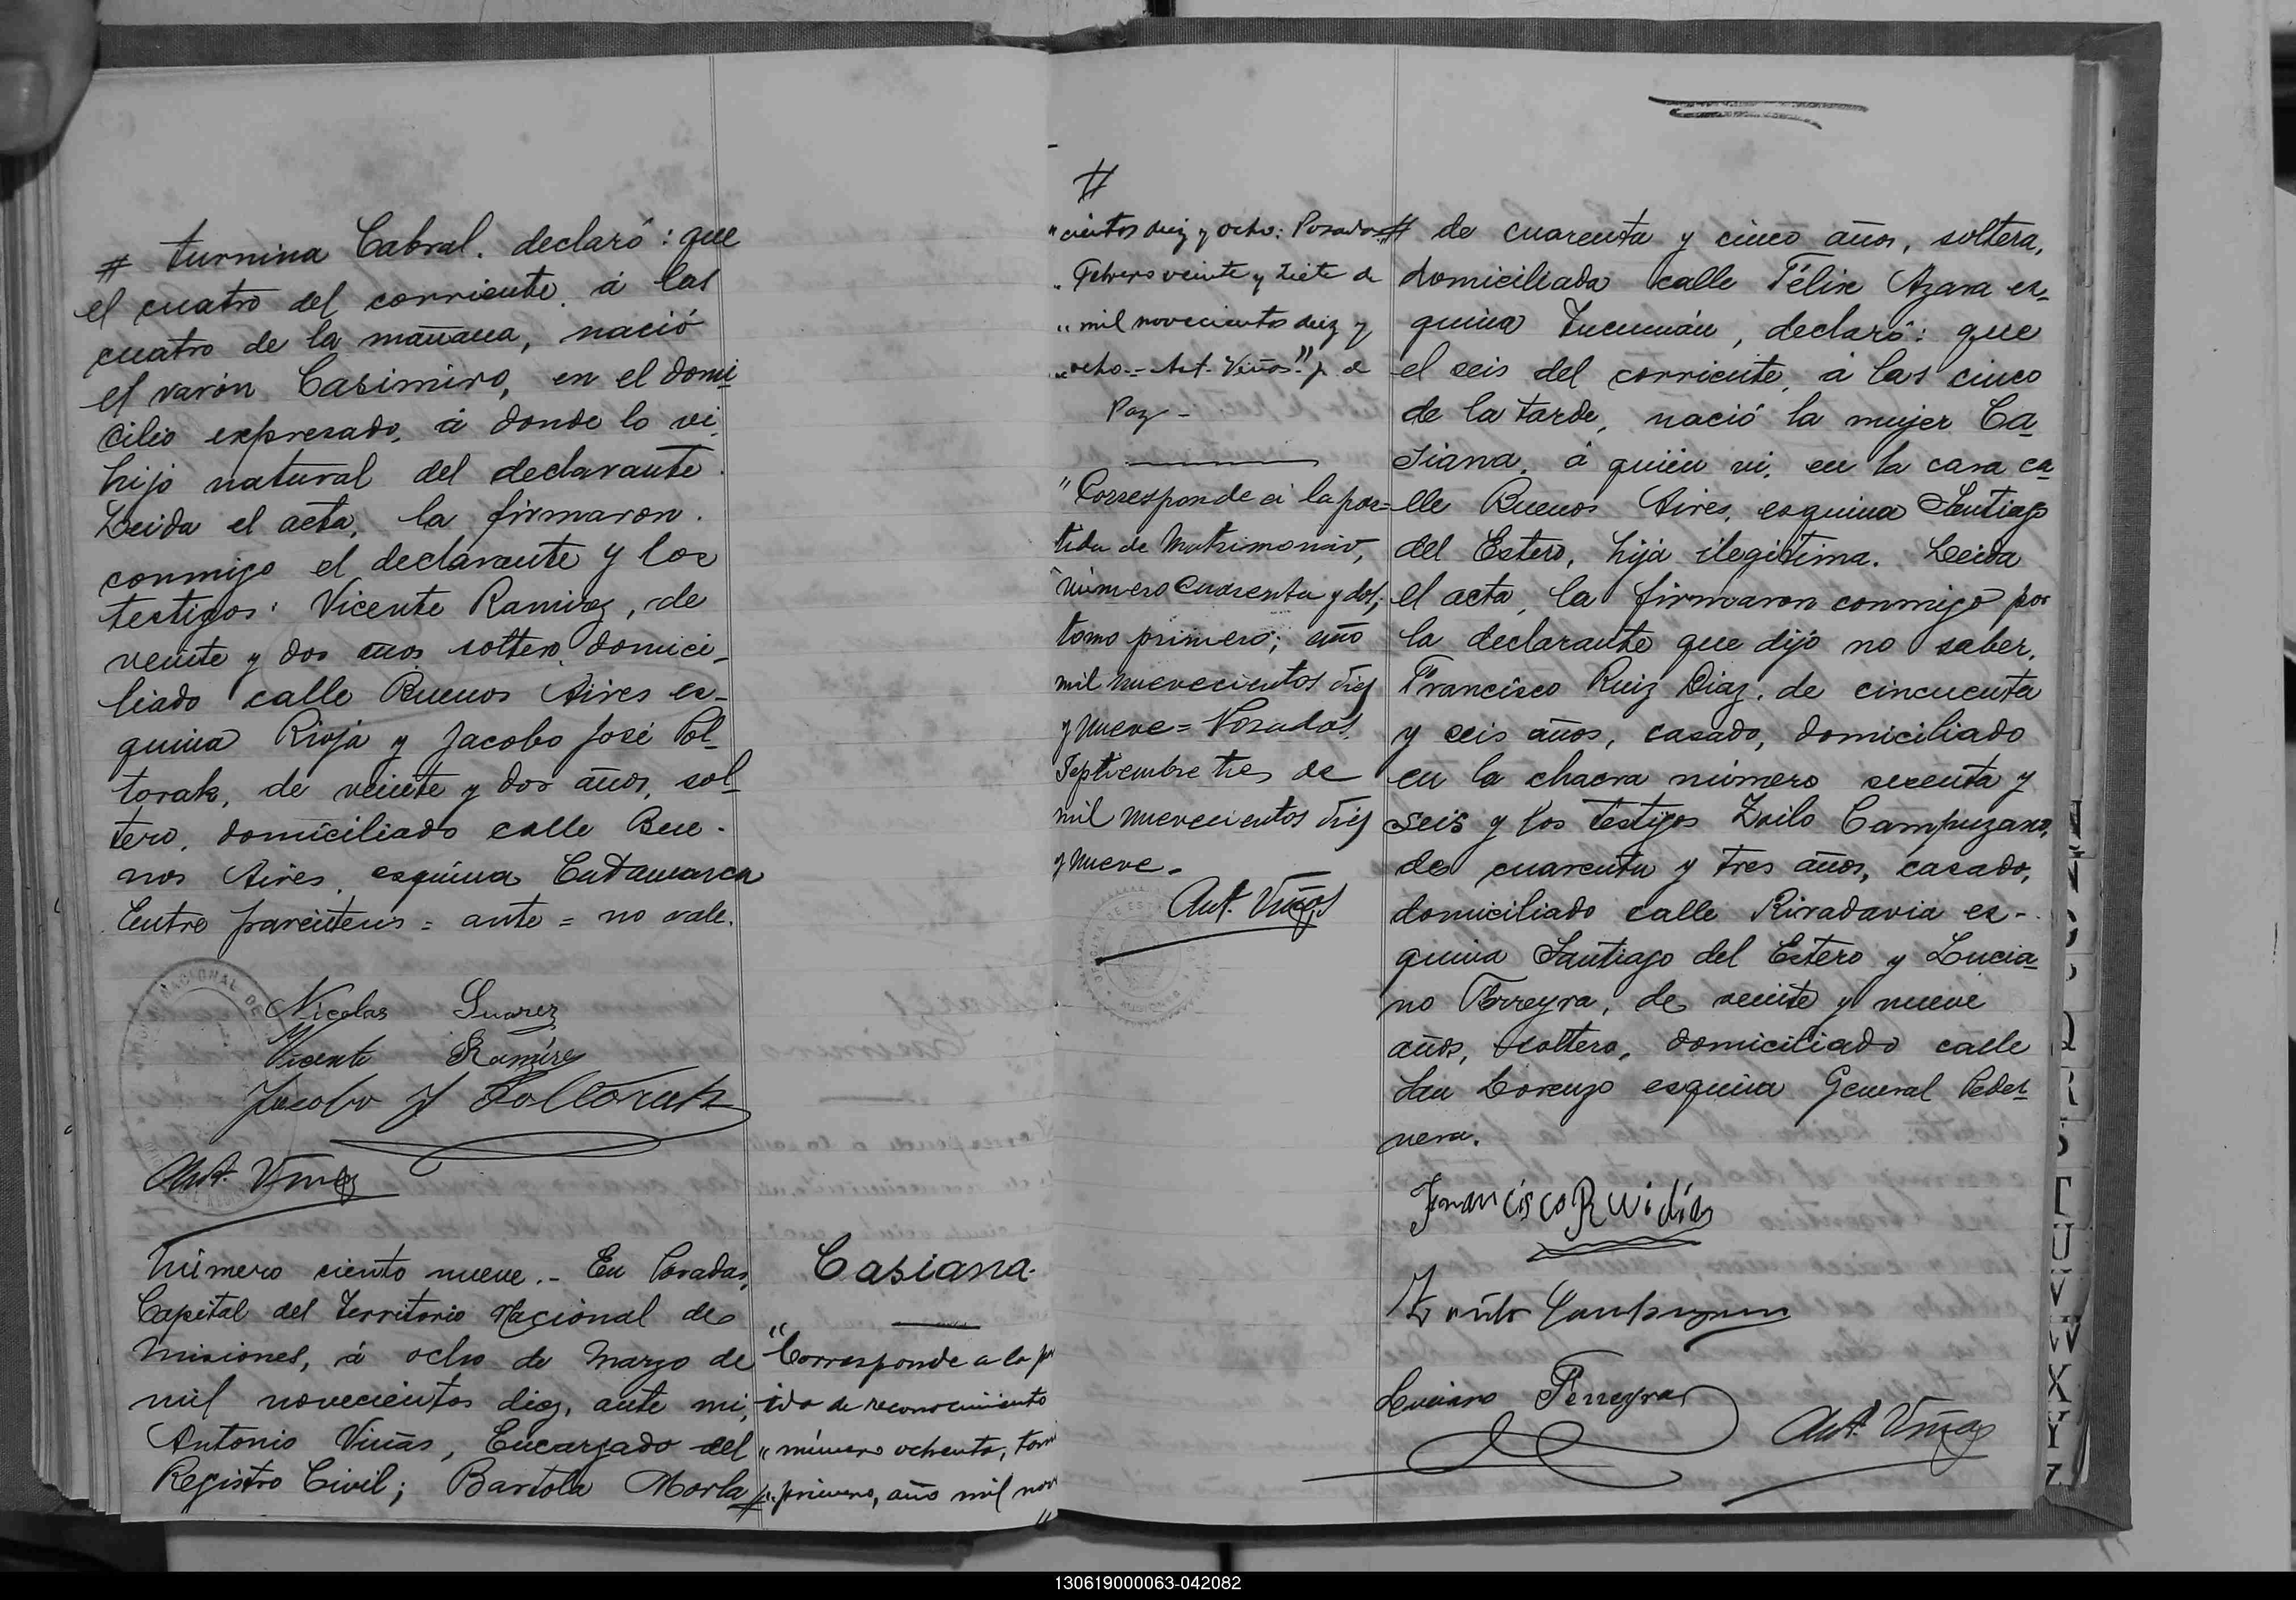 # turnina Cabral. declaró: que
el cuatro del corriente, á las
cuatro de la mañana, nació
el varón Casimiro, en el domi-
cilio expresado, á donde lo vi,
hijo natural del declarante.
Leida el acta, la firmaron
conmigo el declarante y los
testigos: Vicente Ramirez, de
veinte y dos años, soltero, domici-
liado calle Buenos Aires es-
quina Rioja y Jacobo José Pol-
torak, de veinte y dos años, sol-
tero, domiciliado calle Bue-
nos Aires, esquina Catamarca
Entre parentesis = ante = no vale.
Nicolas Suarez
Vicente Ramírez
Jacobo J Poltorak
Ant. Viñas
Número ciento nueve.- En Posadas,
Capital del Territorio Nacional de
Misiones, á ocho de Marzo de
mil novecientos diez, ante mi,
Antonio Viñas, Encargado del
Registro Civil; Bartola Morla #
Casiana.
"Corresponde a la par
tida de reconocimiento
" número ochenta, tomo
" primero, año mil nove
#
"cientos diez y ocho: Posadas
" Febrero veinte y siete de
" mil novecientos diez y
" ocho.- Ant. Viñas". J. de
Paz -
"Corresponde á la par-
tida de Matrimonio,
número cuarenta y dos,
tomo primero; año
mil nuevecientos diez
y nueve = Posadas,
Septiembre tres de
mil nuevecientos diez
y nueve.
Ant. Viñas
# de cuarenta y cinco años, soltera,
domiciliada calle Félix Azara es-
quina Tucumán, declaró: que
el seis del corriente, á las cinco
de la tarde, nació la mujer Ca-
siana, á quién vi, en la casa ca-
lle Buenos Aires, esquina Santiago
del Estero, hija ilegitima. Leida
el acta, la firmaron conmigo por
la declarante que dijo no saber,
Francisco Ruiz Diaz, de cincuenta
y seis años, casado, domiciliado
en la chacra número sesenta y
seis y los testigos Zoilo Campuzano,
de cuarenta y tres años, casado,
domiciliado calle Rivadavia es-
quina Santiago del Estero y Lucia-
no Ferreyra, de veinte y nueve
años, soltero, domiciliado calle
San Lorenzo esquina General Peder-
nera.
Francisco Ruidias
Zoilo Campuzano
Luciano Ferreyra
Ant. Viñas
130619000063-042082